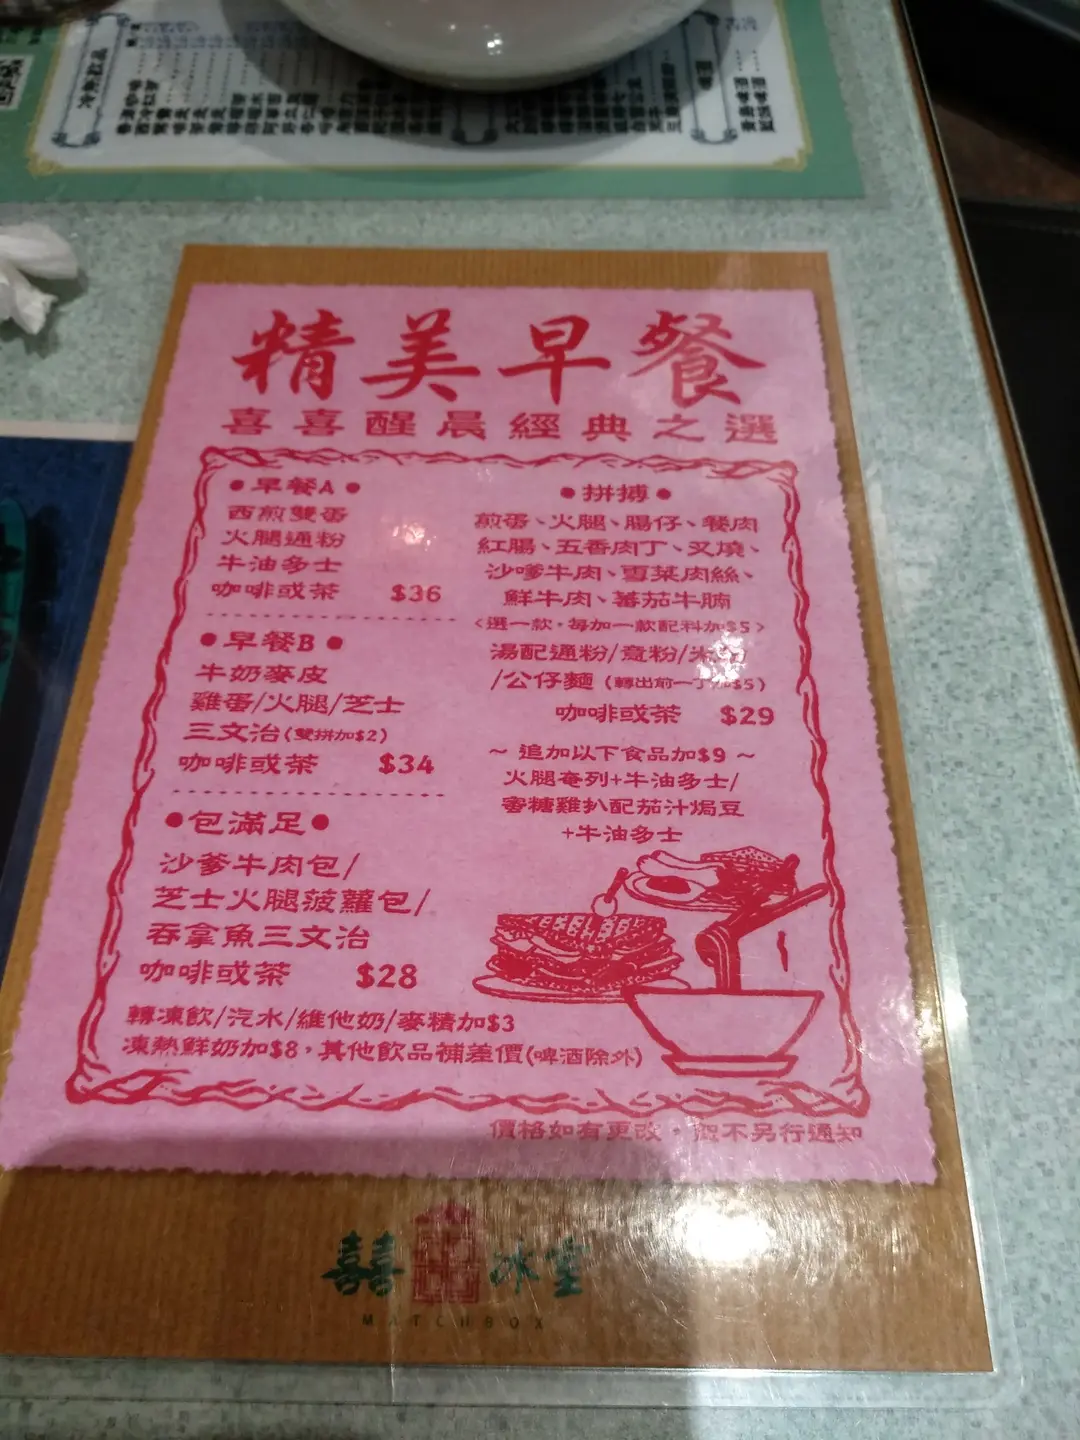 精美早餐
喜喜醒晨經典之選
●早餐A●
西煎雙蛋
火腿通粉
牛油多士
咖啡或茶 $36
●早餐B●
牛奶麥皮
雞蛋/火腿/芝士
三文治(雙拼加$2)
咖啡或茶 $34
●包滿足●
沙爹牛肉包/
芝士火腿菠蘿包/
吞拿魚三文治
咖啡或茶 $28
●拼搏●
煎蛋、火腿、腸仔、餐肉
紅腸、五香肉丁、叉燒、
沙嗲牛肉、雪菜肉絲、
鮮牛肉、蕃茄牛腩
<選一款,每加一款配料加$5>
湯配通粉/意粉/米粉
/公仔麵(轉出前一丁加$5)
咖啡或茶 $29
~ 追加以下食品加$9 ~
火腿奄列+牛油多士/
蜜糖雞扒配茄汁焗豆
+牛油多士
轉凍飲/汽水/維他奶/麥精加$3
凍熱鮮奶加$8,其他飲品補差價(啤酒除外)
價格如有更改,恕不另行通知
囍囍冰室
MATCHBOX